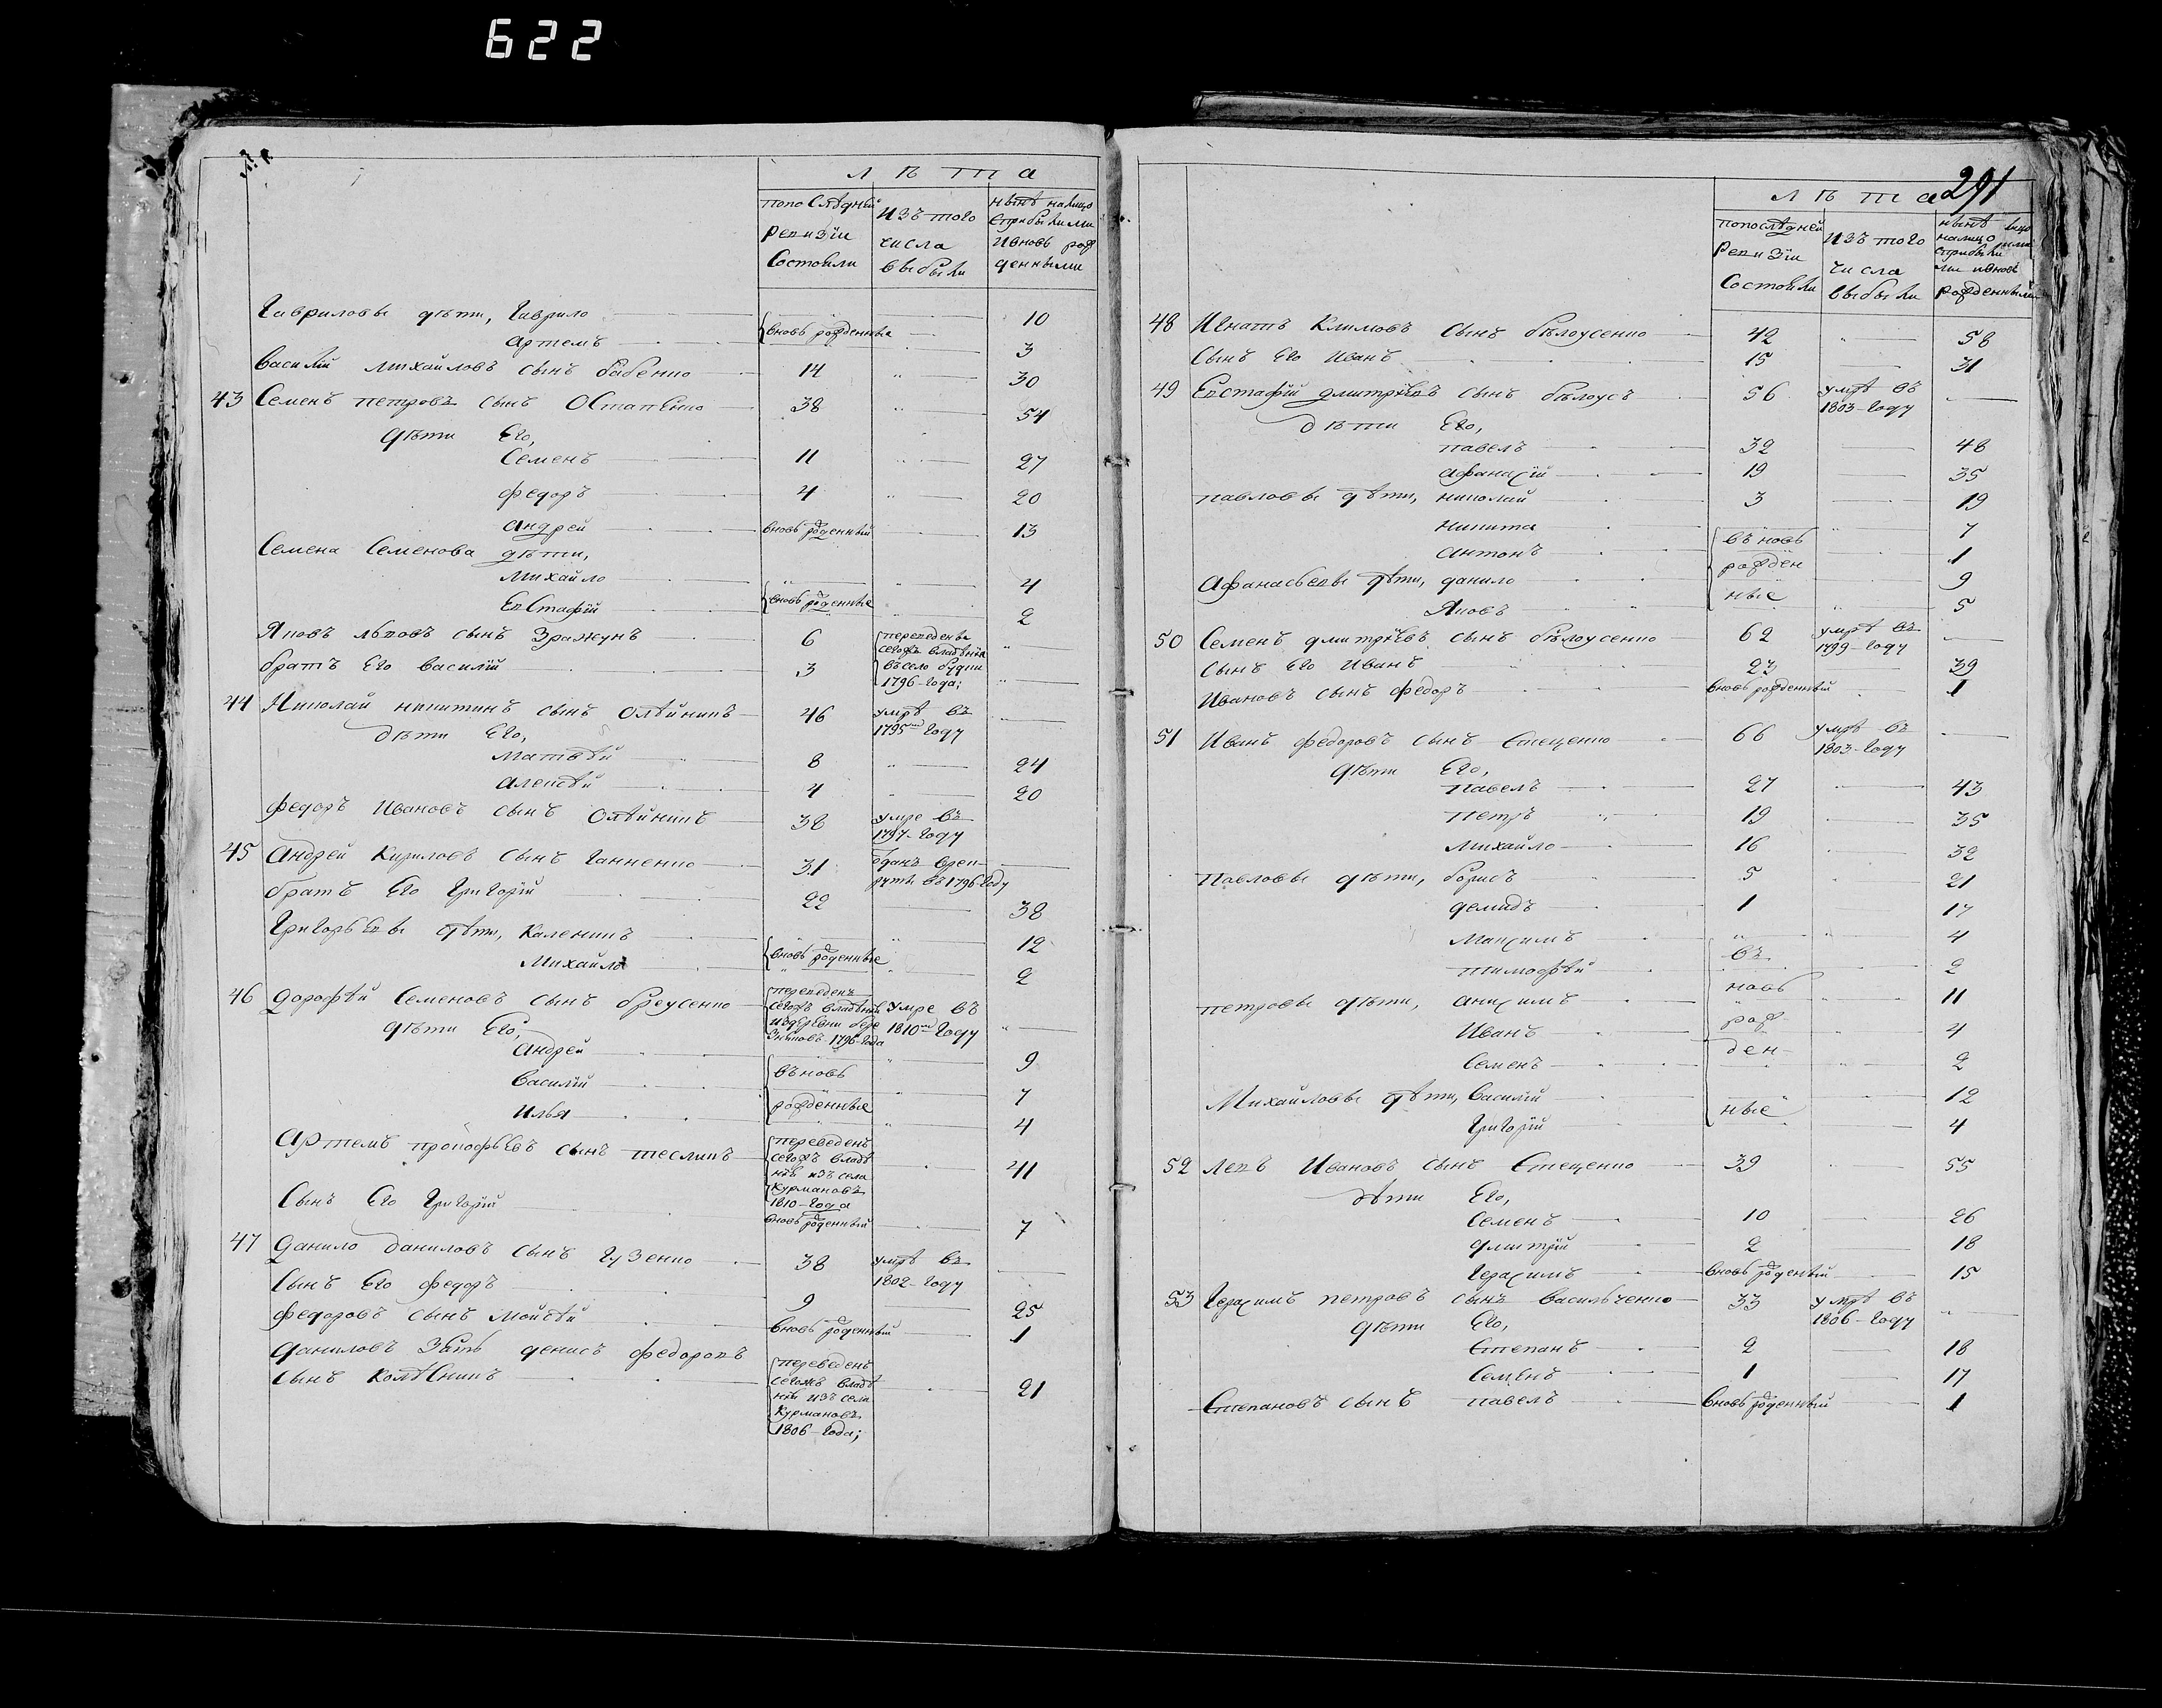 622
лѣта
попослѣдней ревизіи состояли
изъ того числа выбыли
нынѣ налицо съприбылыми ивновь рожденными
Гавриловы дѣти, Гаврило 10
вновь рожденные
артемъ 3
василій михайловъ сынъ бабенко 14 " 30
43 Семенъ петровъ сынъ Остапенко 38 " 54
дѣти Его,
Семенъ 11 " 27
федоръ 4 " 20
андрей вновь рожденный 13
Семена Семенова дѣти,
михайло " " 4
вновь рожденные
Евстафій " " 2
Яковъ львовъ сынъ 6 переведены
сегожъ владѣнія "
братъ Его василій 3 въ село будки
1796-года; "
44 Николай никитинъ сынъ Олѣйникъ 46 умрѣ въ
1795м году
дѣти Его,
матвѣй 8 " 24
алексѣй 4 " 20
федоръ Ивановъ сынъ Олѣйникъ 38 умре въ
1797-году
45 андрей кириловъ сынъ ганненко 31 отданъ врек-
руты въ 1796-году
братъ Его григорій 22 38
григорьевы дѣти, каленикъ " " 12
вновь рожденные
михайло " " 2
46 дорофѣй Семеновъ сынъ бреусенко переведенъ
сегожъ владѣнія умре въ
издеревни бере 1810м году "
1796-года
дѣти Его,
андрей " 9
вьновь
василій " 7
рожденные
илья " 4
артемъ прокофьевъ сынъ тесликъ переведенъ
сегожъ владѣ
нія изъ села 41
курмановъ
1810-года
Сынъ Его григорій вновь рожденный 7
47 данило даниловъ сынъ гузенко 38 умрѣ въ
1802-году
Сынъ Его федоръ 9 25
федоровъ сынъ мойсѣй вновь рожденный 1
даниловъ зять денисъ федоровъ
сынъ колѣсникъ переведенъ
сегожъ владѣ
нія изъ села 21
курмановъ
1806-года;
291
лѣта
попослѣдней ревизіи состояли
изъ того числа выбыли
нынѣ налицо
рожденными
48 Игнатъ климовъ сынъ бѣлоусенко 42 " 58
сынъ Его иванъ 15 31
49 Евстафій дмитріевъ сынъ бѣлоусъ 56 умрѣ въ
1803-году "
дѣти Его,
павелъ 32 48
афанасій 19 35
павловы дѣти, николай 3 19
никита " 7
вьновь
антонъ 1
рожден
афанасьевы дѣти, данило 9
ные
Яковъ " 5
50 Семенъ дмитріевъ сынъ бѣлоусенко 62 умрѣ въ
1799-году
сынъ Его иванъ 23 39
ивановъ сынъ федоръ вновь рожденный 1
51 Иванъ федоровъ сынъ Стеценко 66 умрѣ въ
1803-году
дѣти Его,
павелъ 27 43
петръ 19 35
михайло 16 32
павловы дѣти, борисъ 5 21
демидъ 1 17
максимъ " " 4
въ
тимофѣй 2
новь
петровы дѣти, анисимъ 11
рож-
Иванъ 4
ден-
Семенъ 2
Михайловы дѣти, василій 12
ные
григорій 4
52 левъ Ивановъ сынъ Стеценко 39 " 55
дѣти Его,
семенъ 10 26
дмитрій 2 18
герасимъ вновь рожденный 15
53 герасимъ петровъ сынъ васильченко 33 умрѣ въ
1806-году "
дѣти Его,
степанъ 2 18
семенъ 1 17
Степановъ сынъ павелъ вновь рожденный 1